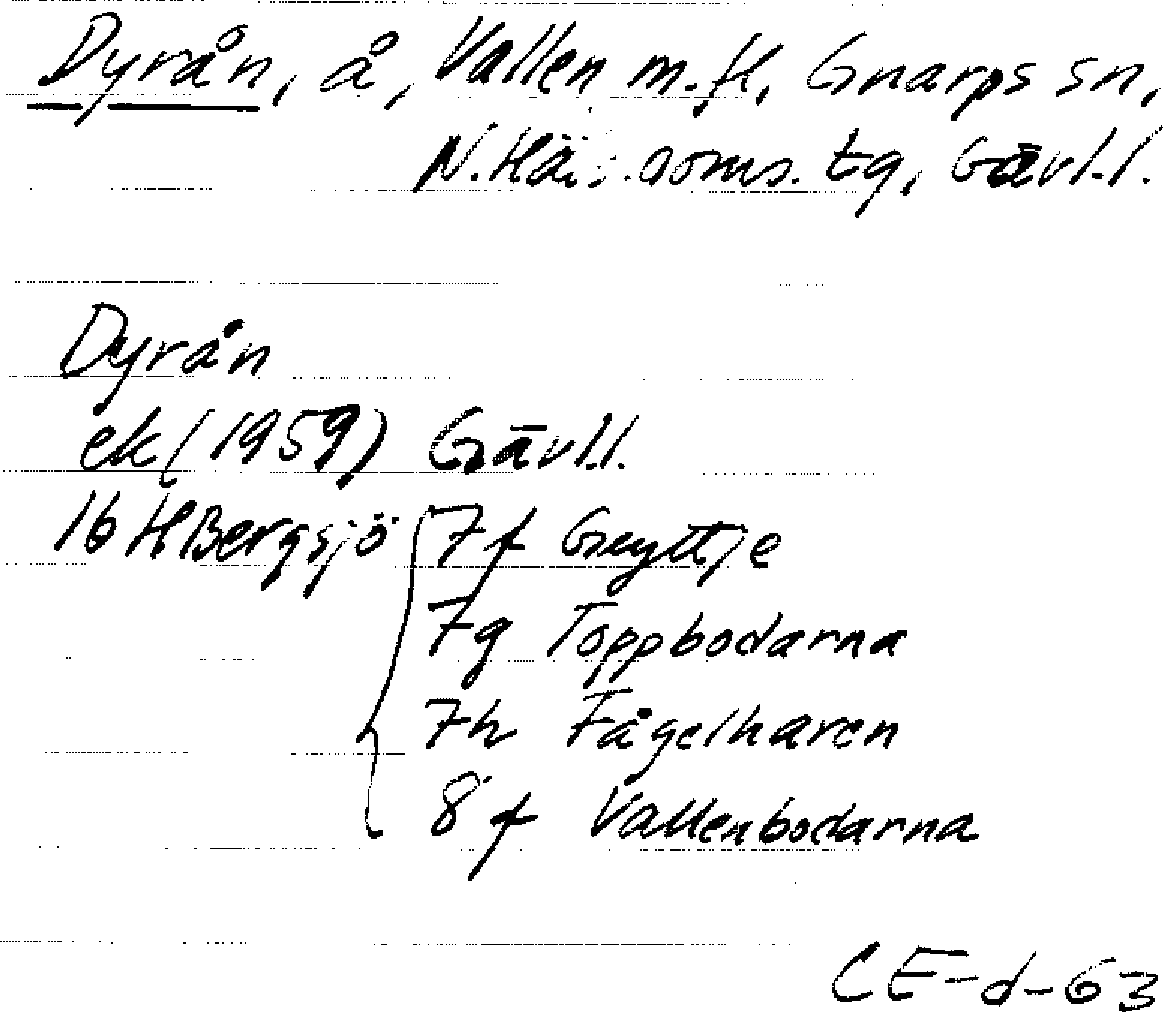 Dyrån, å, Vallen m.fl. Gnarps sn,
N. tg, Gävl.l.
Dyrån
ek (1959) Gävl.l.
16 H Bergsjö 7f Gryttje
7g Toppbodarna
7h Fågelharen
8f Vallenbodarna
CE-d-63